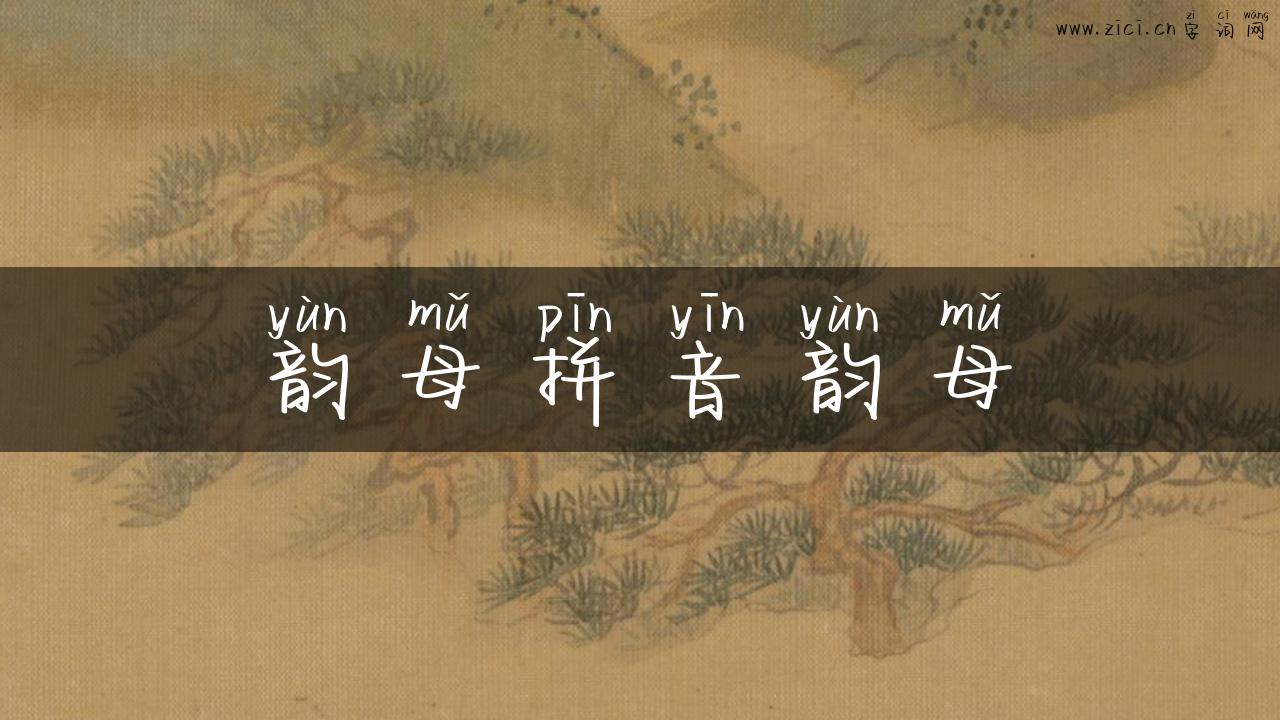 zì cí wǎng
www.zīcī.cn 字 词 网
yùn mǔ pīn yīn yùn mǔ
韵 母 拼 音 韵 母